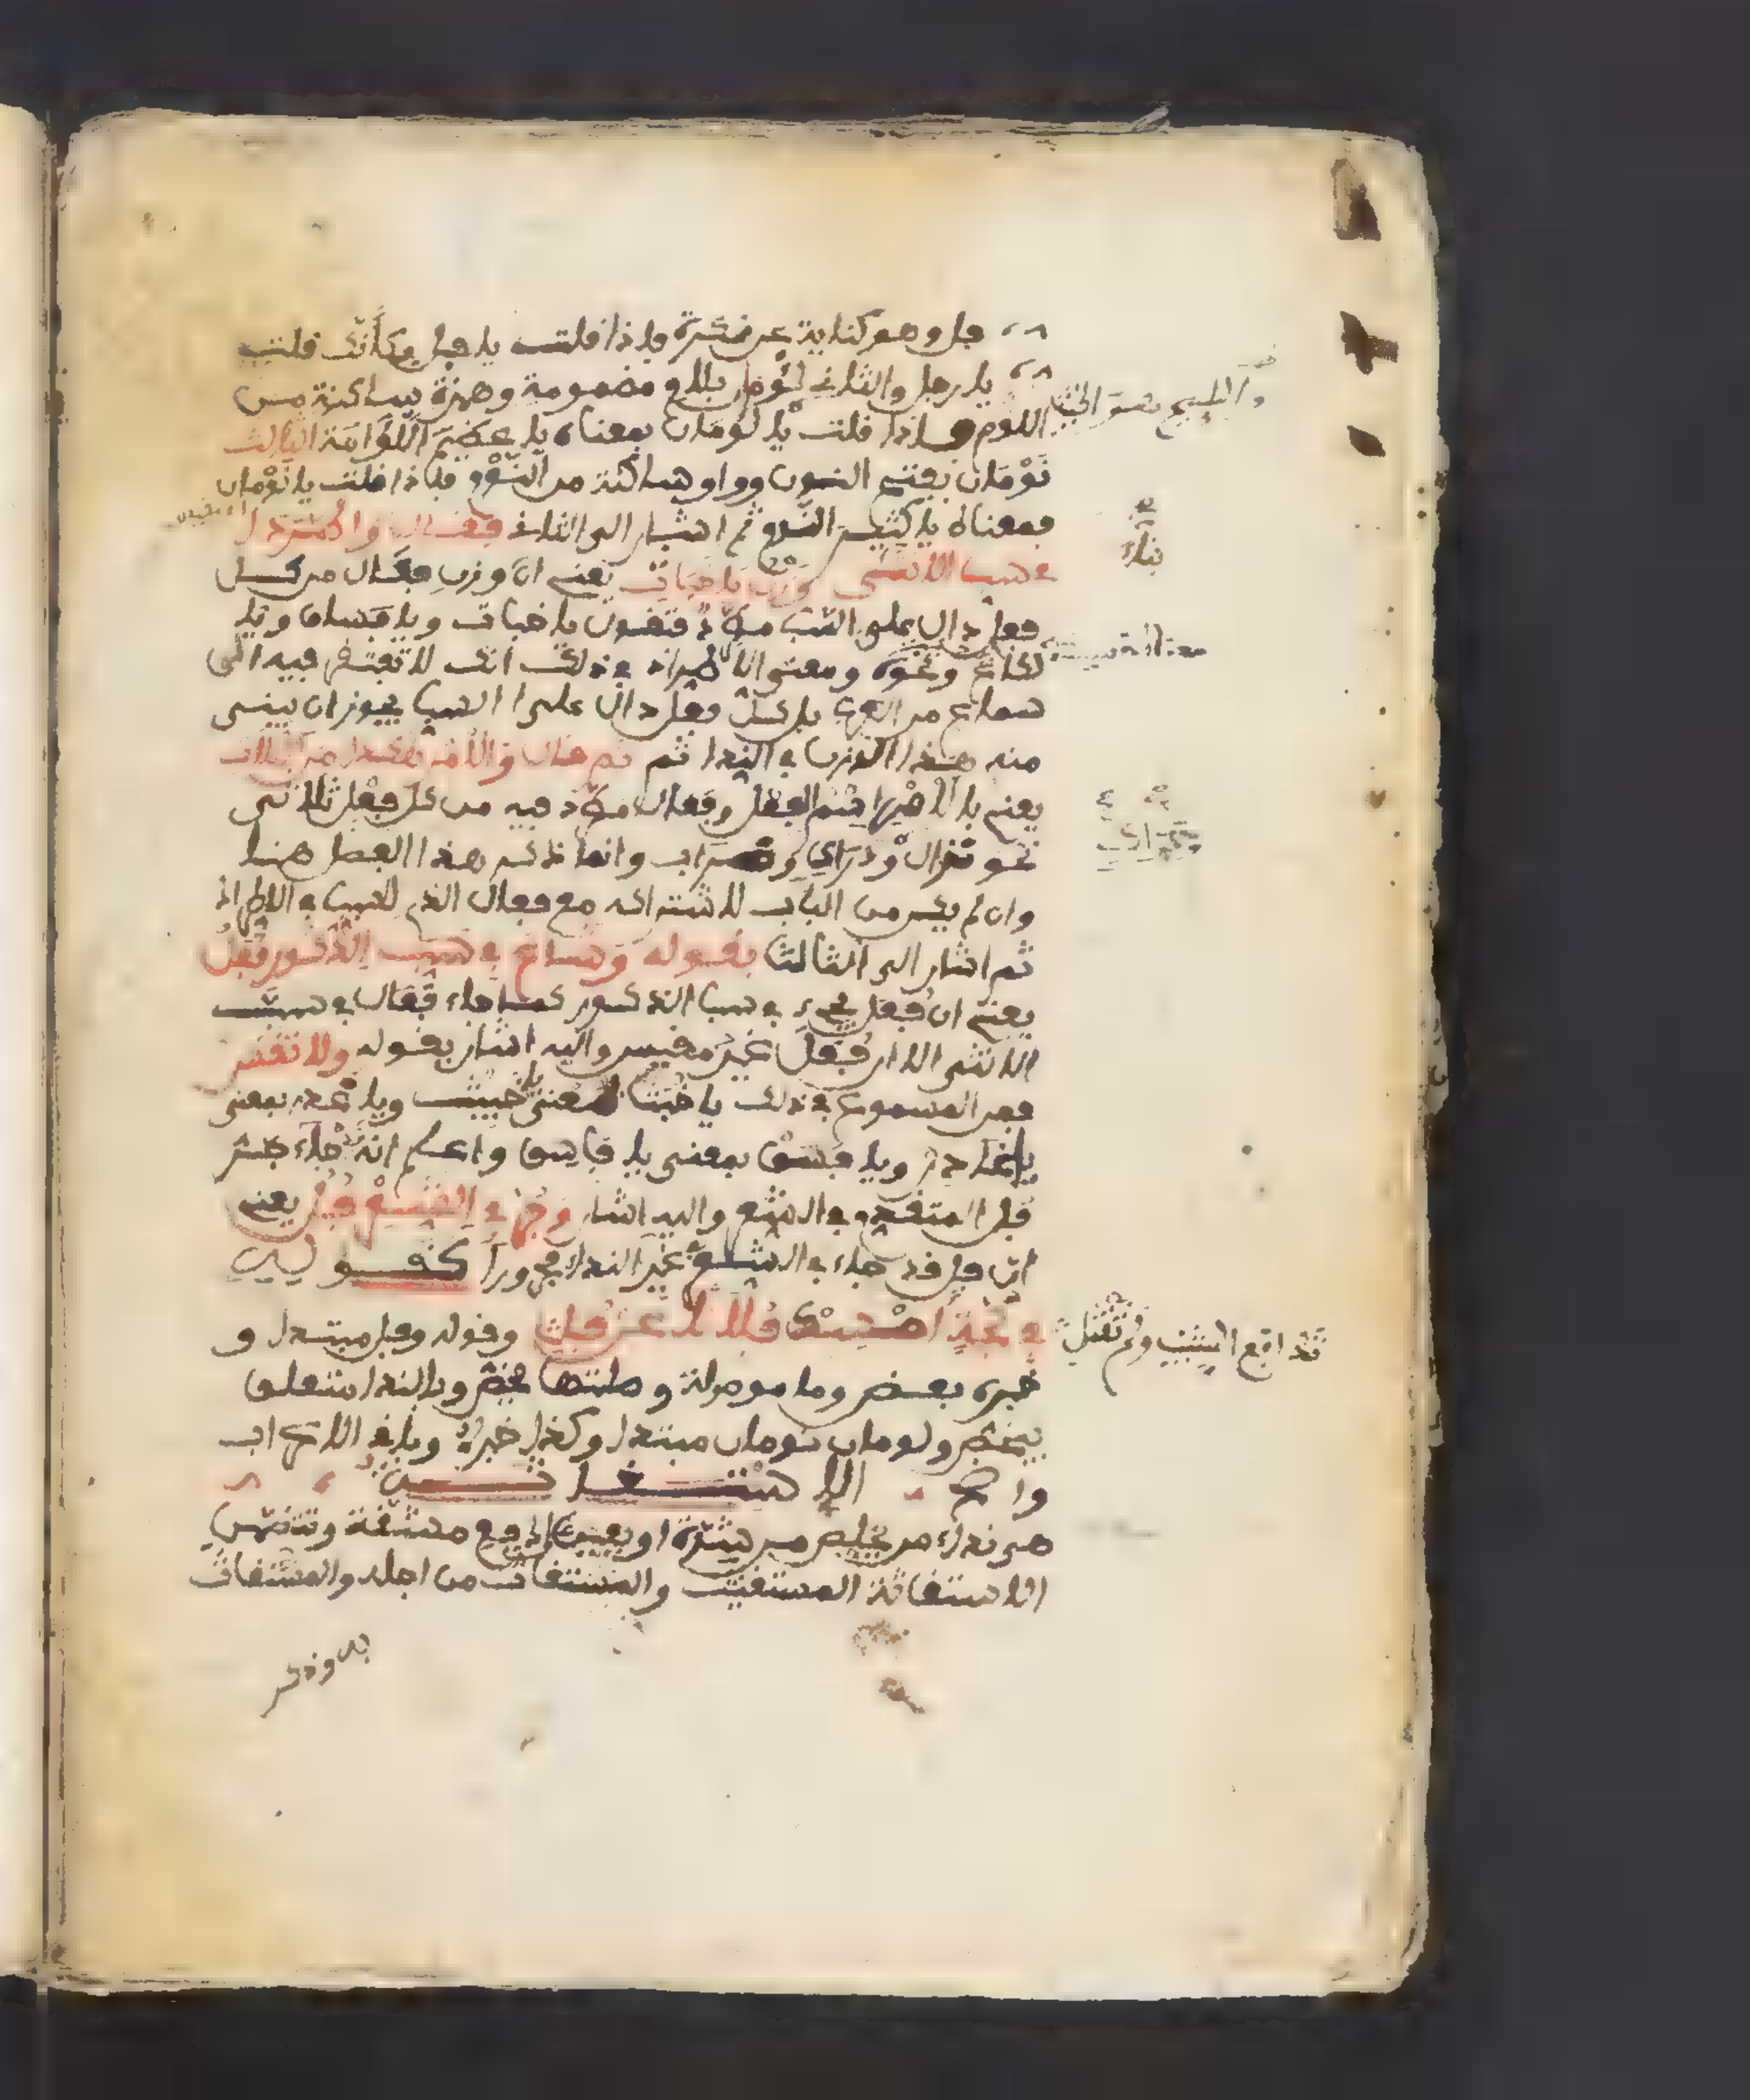 فل وهو كناية عن نكرة فإذا قلت يا فل فكأنك قلت
يا رجل والثاني لؤمان بلام مضمومة وهمزة ساكنة من
اللوم فإذا قلت يا لؤمان بمعناه يا عظيم اللؤامة الثالث
نَوْمَان بفتح النون وواو ساكنة من النَّوْم فإذا قلت يا نَوْمان
فمعناه يا كثير النوم ثم اشار الى الثاني فقال واطردا
في سب الانثى وزن يا خباث يعني ان وزن فعال من كل
فعل دال على السب مطرد فتقول يا خباث ويا فساق ويا
لكاع ونحوه ومعنى الاطراد في ذلك انك لا تفتقر فيه الى
سماع من العرب بل كل فعل دال على السب يجوز ان يبنى
منه هذا الوزن في الندا ثم قال والامر هكذا من الثلاث
يعني بالامر اسم الفعل وفعال مطرد فيه من كل فعل ثلاثي
نحو نزال ودراك وضراب وانما ذكر هذا الفصل هنا
وان لم يكن من الباب لاشتراكه مع فعال الذي للسب في الاطراد
ثم اشار الى الثالث بقوله وشاع في سب الذكور فُعَلُ
يعني ان فُعَل يجيء في سب الذكور كما جاء فَعَال في سب
الانثى الا ان فُعَل غير مقيس واليه اشار بقوله ولا تقس
فمن المسموع في ذلك يا خُبَث بمعنى يا خبيث ويا غدر بمعنى
يا غادر ويا فسق بمعنى يا فاسق واعلم انه جاء جر
فل المتقدم في الشعر واليه اشار وجر في الشعر فُل يعني
ان فل قد جاء في الشعر في غير النداء مجرورا كقوله
في لجة امسك فلانا عن فل وقوله وفل مبتدا و
خبره بعض وما موصولة وصلتها يخص وبالندا متعلق
بيخص ولومان نومان مبتدا وكذا خبره وباقي الاعراب
واضح الاستغاثة
هي نداء من يخلص من شدة او يعين على دفع مشقة وتتضمن
الاستغاثة المستغيث والمستغاث من اجله والمستغاث
به وذكر
تدافع الشيب ولم تقتل